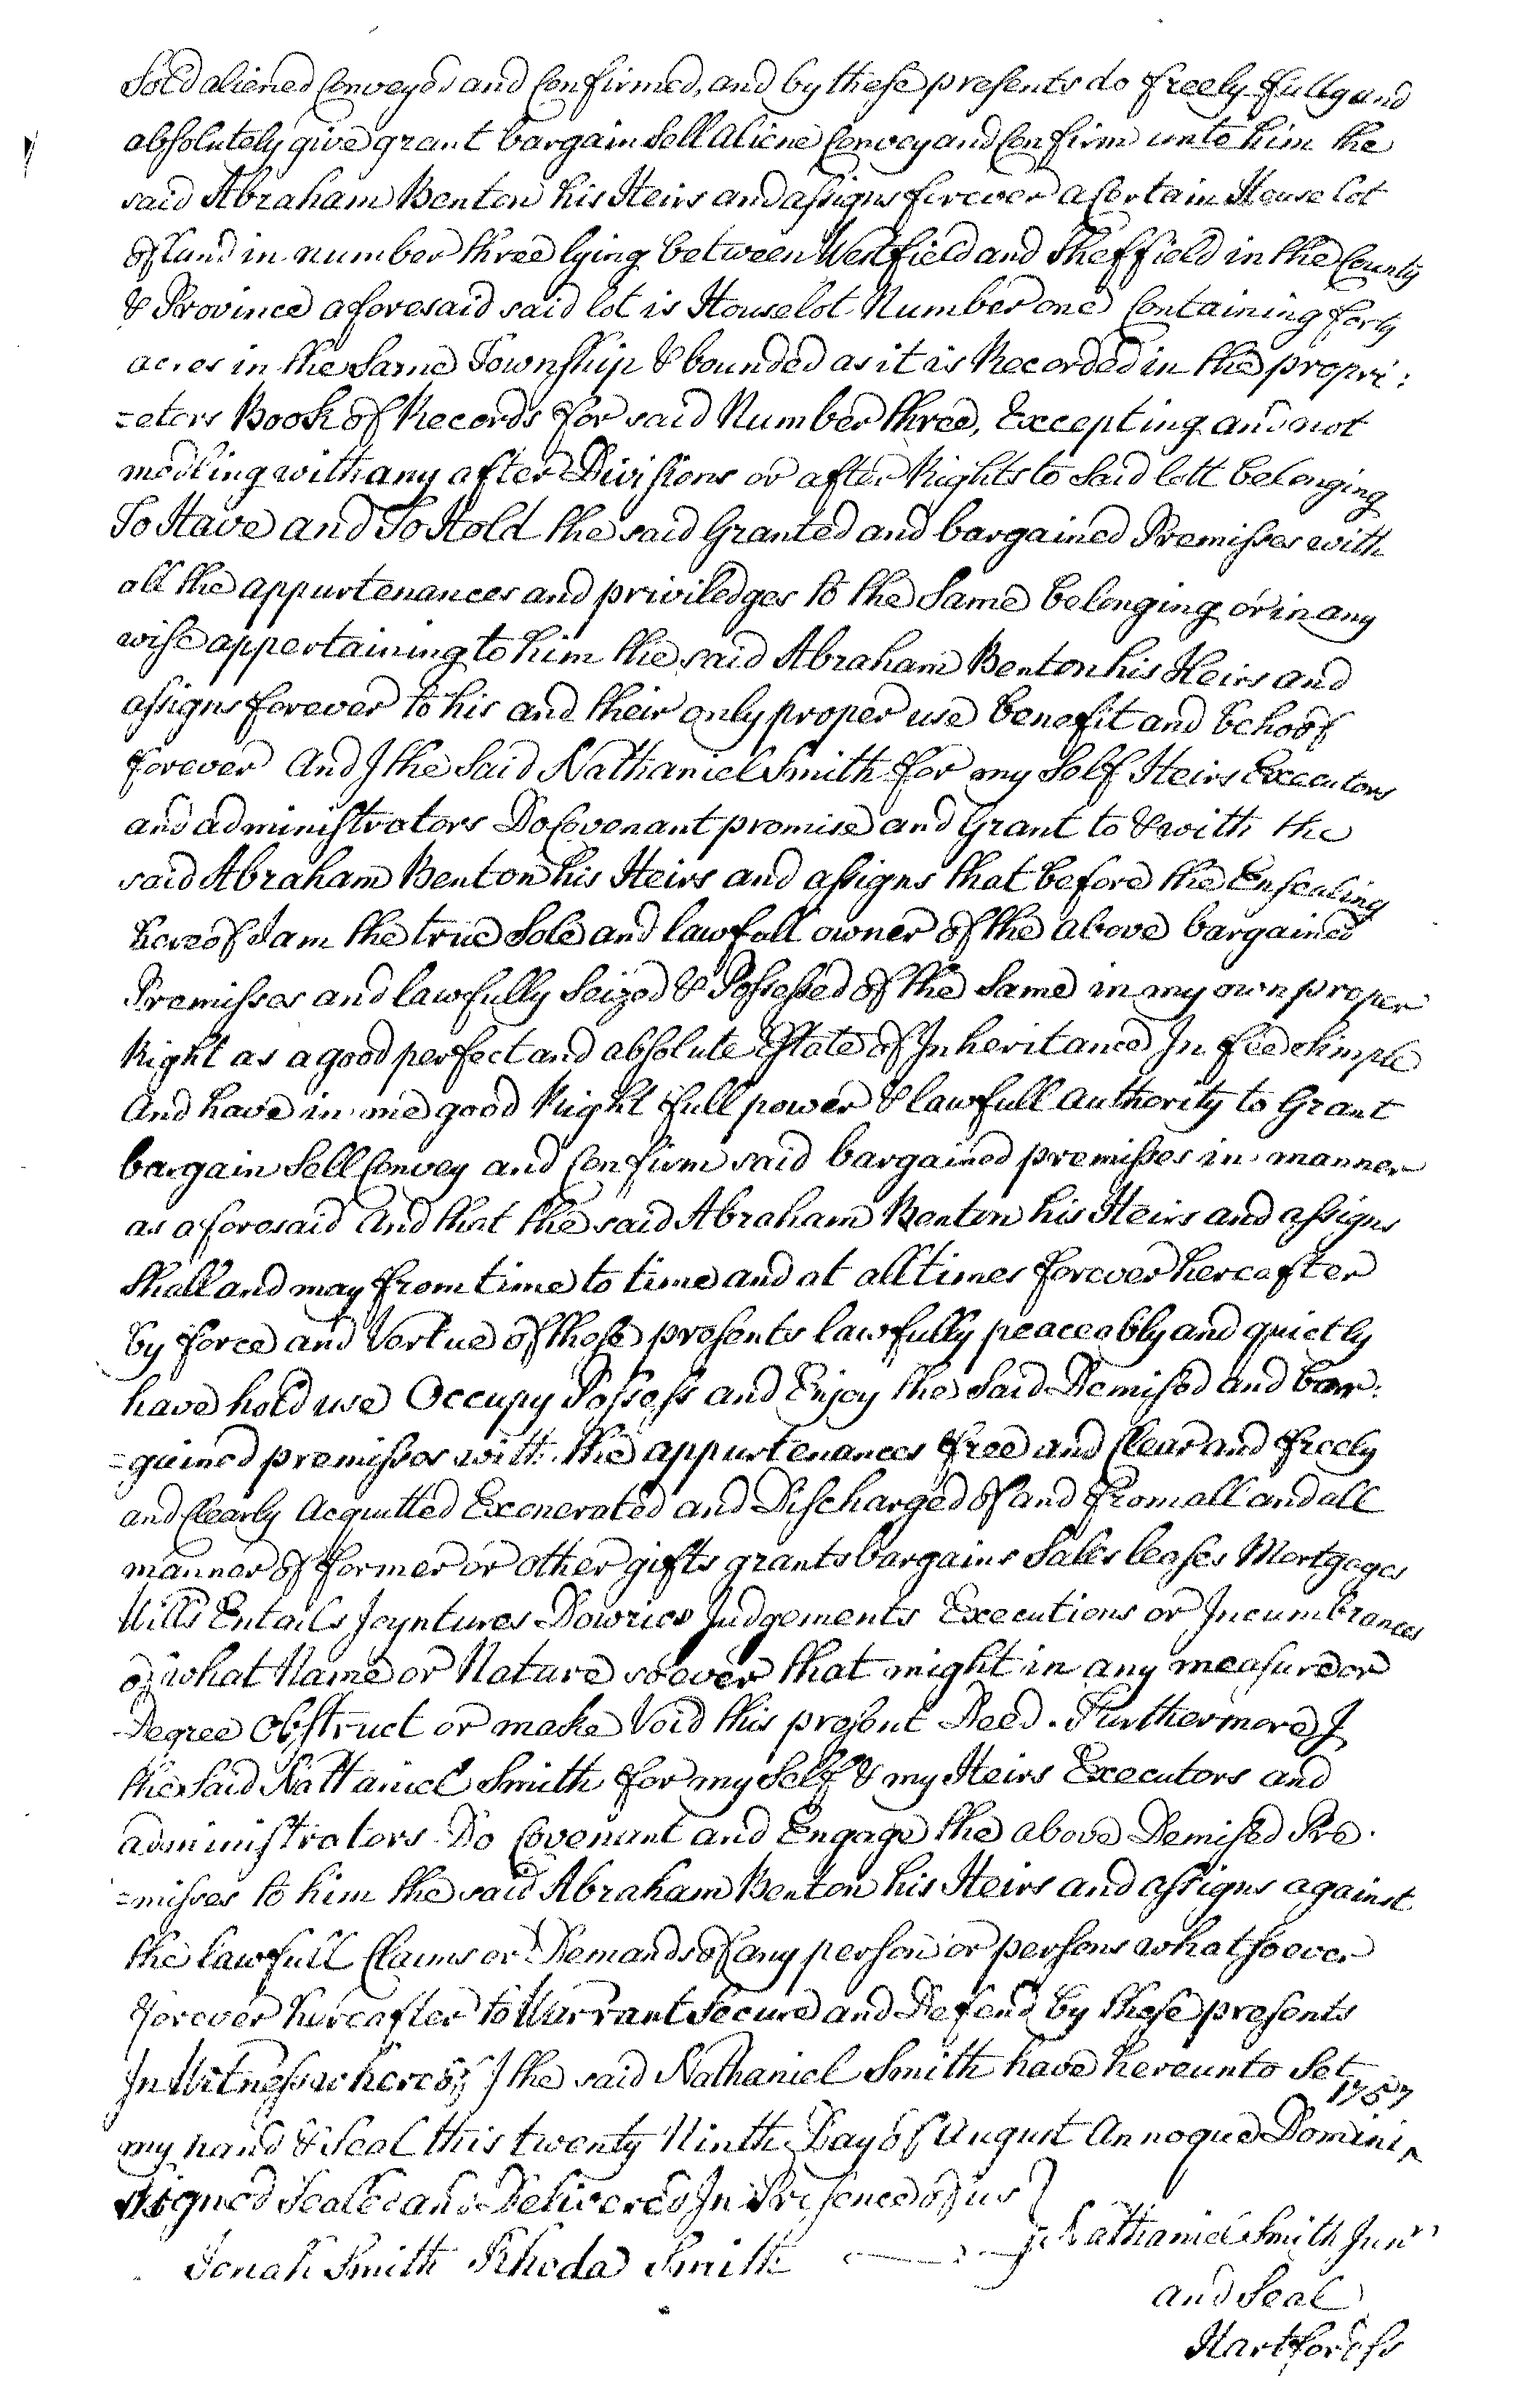 Sold aliened Conveyed and Confirmed, and by these presents do freely fully and
absolutely give grant bargain Sell Aliene Convey and Confirm unto him the
said Abraham Benton his Heirs and assigns forever a Certain House lot
of land in number three lying between Westfield and Sheffield in the County
& Province aforesaid said lot is House lot Number one Containing forty
acres in the Same Township & bounded as it is Recorded in the propri:
=etors Book of Records for said Number three, Excepting and not
medling with any after Divisions or after Rights to Said lott belonging
To Have and To Hold the said Granted and bargained Premisses with
all the appurtenances and priviledges to the Same belonging or in any
wise appertaining to him the said Abraham Benton his Heirs and
assigns forever to his and their only proper use benefit and behoof
forever And I the Said Nathaniel Smith for my Self Heirs Executors
and administrators Do Covenant promise and Grant to & with the
said Abraham Benton his Heirs and assigns that before the Ensealing
hereof I am the true Sole and lawfull owner of the above bargained
Premisses and lawfully Seized & Possessed of the Same in my own proper
Right as a good perfect and absolute Estate of Inheritance In fee Simple
And have in me good Right full power & lawfull authority to Grant
bargain Sell Convey and Confirm said bargained premisses in manner
as aforesaid And that the said Abraham Benton his Heirs and assigns
Shall and may from time to time and at all times forever hereafter
by force and Vertue of these presents lawfully peaceably and quietly
have hold use Occupy Possess and Enjoy the Said Demised and bar:
=gained premisses with the appurtenances free and Clear and freely
and Clearly Acquitted Exonerated and Discharged of and from all and all
manner of former or other gifts grants bargains Sales leases Mortgages
Wills Entails Joyntures Dowries Judgements Executions or Incumbrances
of what Name or Nature soever that might in any measure or
Degree Obstruct or make Void this present Deed. Furthermore I
the Said Nattaniel Smith for my Self & my Heirs Executors and
administrators Do Covenant and Engage the above Demised Pre.
=misses to him the said Abraham Benton his Heirs and assigns against
the lawfull Claims or Demands of any person or persons whatsoever
forever hereafter to Warrant Secure and Defend by these presents
In Witness whereof I the said Nathaniel Smith have hereunto Set
1757
my hand & Seal this twenty Ninth Day of August Annoque Domini
Signed Sealed and Delivered In Presence of us
Nathaniel Smith Junr
Jonah Smith Rhoda Smith
and Seal
Hartford ss